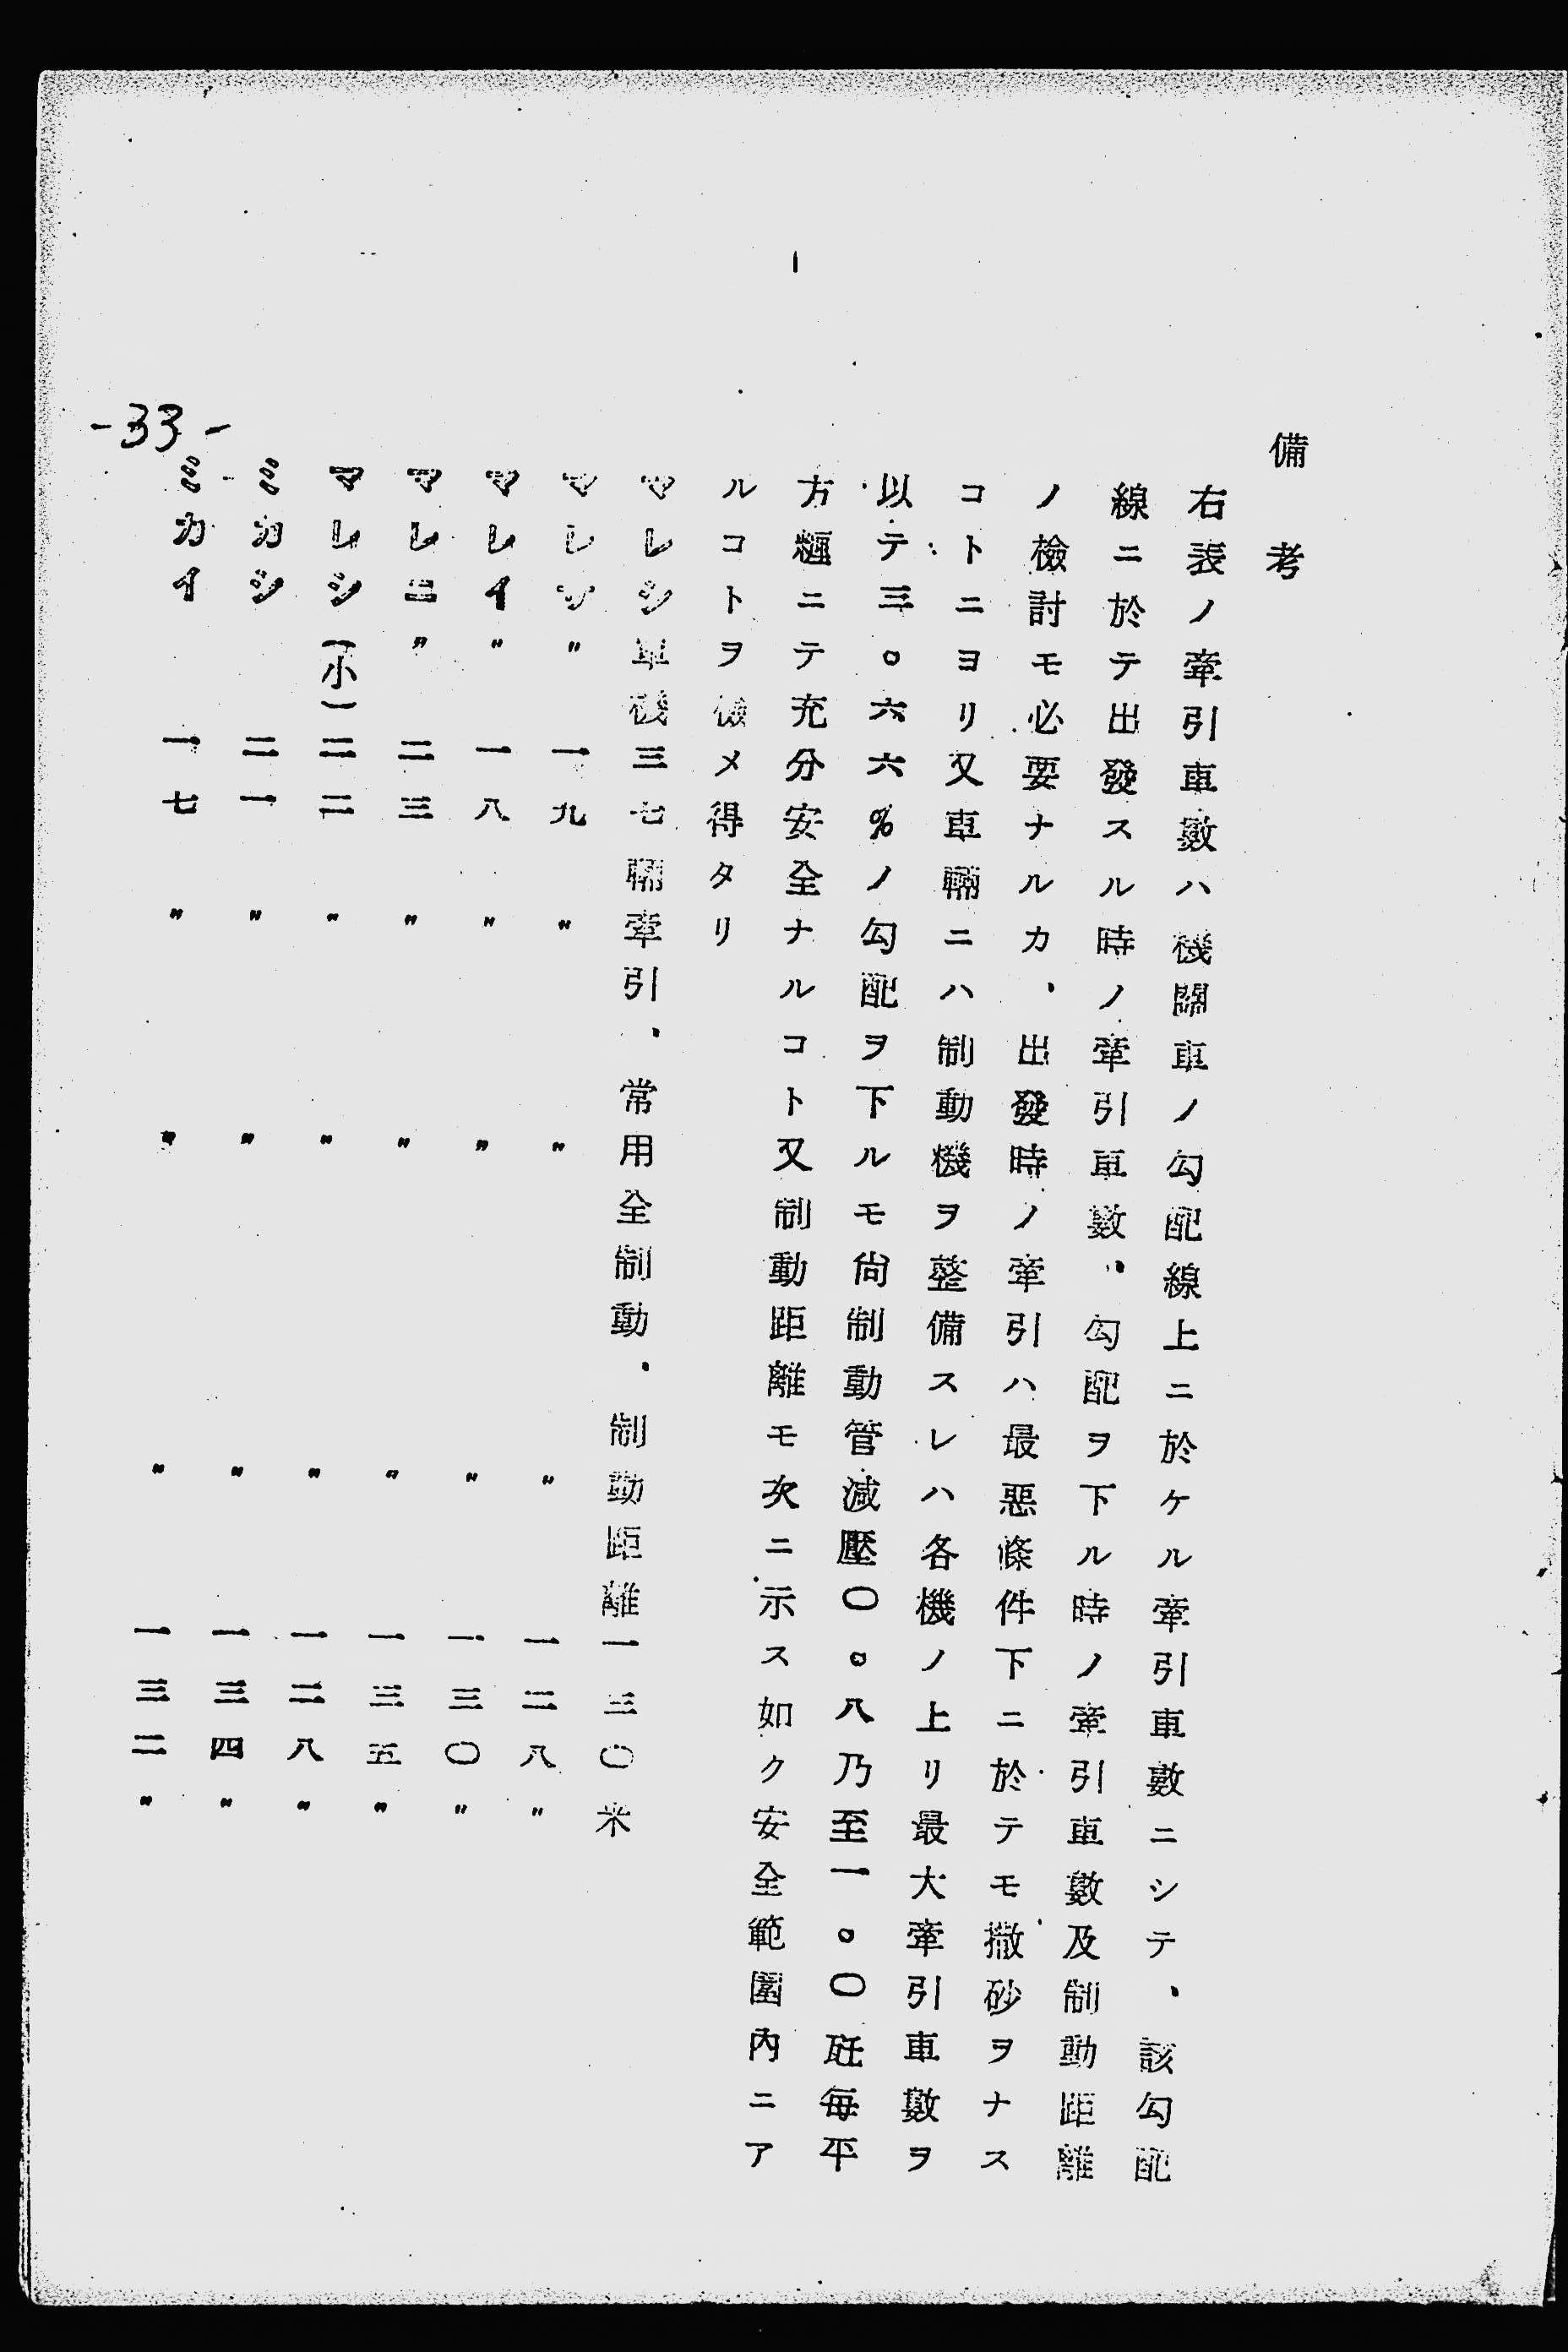 備考
右表ノ牽引車數ハ機關車ノ勾配線上ニ於ケル牽引車數ニシテ、該勾配
線ニ於テ出發スル時ノ牽引車數、勾配ヲ下ル時ノ牽引車數及制動距離
ノ檢討モ必要ナルカ、出發時ノ牽引ハ最惡條件下ニ於テモ撒砂ヲナス
コトニヨリ又車輛ニハ制動機ヲ整備スレハ各機ノ上リ最大牽引車數ヲ
以テ三〇。六六%ノ勾配ヲ下ルモ尚制動管減壓〇。八乃至一。〇瓩每平
方糎ニテ充分安全ナルコト又制動距離モ次ニ示ス如ク安全範圍內ニア
ルコトヲ檢メ得タリ
マレシ單機三七輛牽引、常用全制動、制動距離一三〇米
マレソ〃一九〃〃〃一二八〃
マレイ〃一八〃〃〃一三〇〃
マレニ〃二三〃〃〃一三五〃
マレシ(小)二二〃〃〃一二八〃
ミカシ二一〃〃〃一三四〃
ミカイ一七〃〃〃一三二〃
-33-